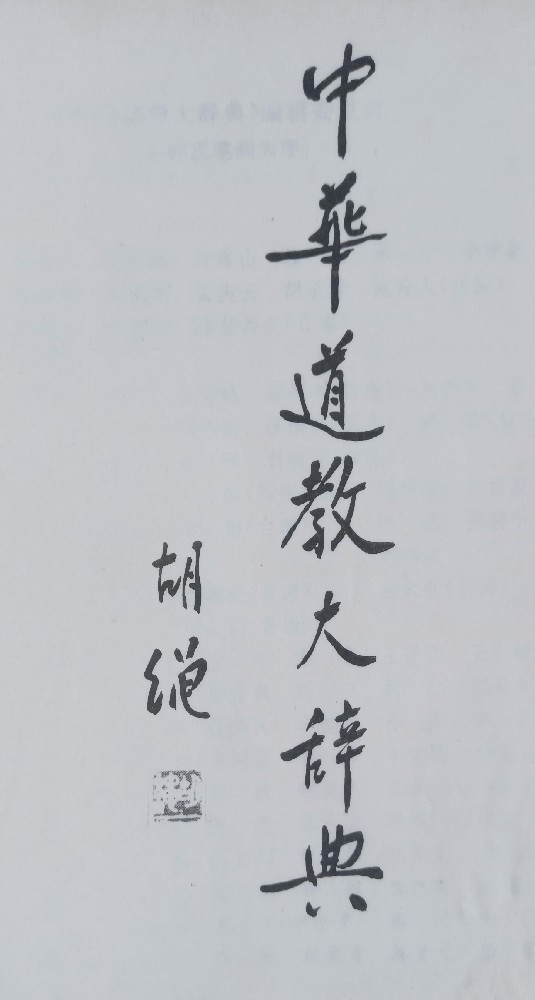 中華道教大辞典
胡绳